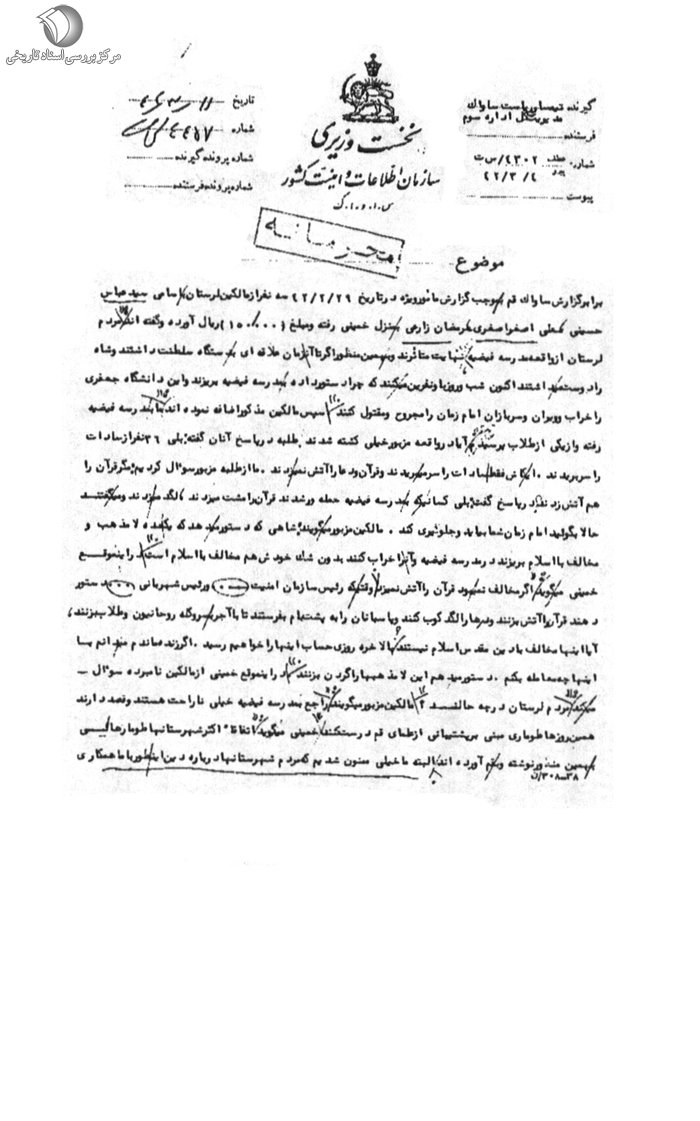 مرکز بررسی اسناد تاریخی
گیرنده تیمسار ریاست ساواك
مدیریت کل اداره سوم
فرستنده
شماره: ۴۳۰۲/س ت
۴۲/۳/۴
پیوست
نخست وزیری
سازمان اطلاعات و امنیت کشور
س. ا. و. ا. ك
تاریخ
شماره
شماره پرونده گیرنده
شماره پرونده فرستنده
محرمانه
موضوع
برابر گزارش ساواك قم بموجب گزارش مأمور ویژه در تاریخ ۴۲/۲/۲۹ سه نفر از مالکین لرستان باسامی سید عباس
حسینی علی اصغر اصغری رمضان زارعی بمنزل خمینی رفته و مبلغ (۱۵۰/۰۰۰) ریال آورده و گفته اند مردم
لرستان از واقعه مدرسه فیضیه نهایت متأثرند و بهمین منظور اگر تا آنزمان علاقه ای بدستگاه سلطنت داشتند و شاه
را دوست میداشتند اکنون شب و روز باو نفرین میکنند که چرا دستور داده بمدرسه فیضیه بریزند و این دانشگاه جعفری
را خراب و ویران و سربازان امام زمان را مجروح و مقتول کنند سپس مالکین مذکور اضافه نموده اند ما بمدرسه فیضیه
رفته و از یکی از طلاب پرسیدیم آیا در واقعه مزبور خیلی کشته شدند. طلبه در پاسخ آنان گفته؛ بلی ۳۶ نفر از سادات
را سر بریدند. ایکاش فقط سادات را سر میبریدند و قرآن و دعا را آتش نمیزدند. ما از طلبه مزبور سوال کردیم؛ مگر قرآن را
هم آتش زدند در پاسخ گفت؛ بلی کسانیکه بمدرسه فیضیه حمله ور شدند قرآن را مشت میزدند، لگد میزدند و میگفتند
حالا بگوئید امام زمان شما بیاید و جلوگیری کند. مالکین مزبور میگویند؛ شاهی که دستور میدهد که یکعده لامذهب و
مخالف با اسلام بریزند در مدرسه فیضیه و آنرا خراب کنند بدون شك خودش هم مخالف با اسلام است در اینموقع
خمینی میگوید اگر مخالف نمیبود قرآن را آتش نمیزد وقتیکه رئیس سازمان امنیت و رئیس شهربانی بدستور
دهند قرآن را آتش بزنند و درها را لگد کوب کنند و پاسبانان را به پشت بام بفرستند تا با آجر بسر و کله روحانیون و طلاب بزنند،
آیا اینها مخالف با دین مقدس اسلام نیستند بالاخره روزی حساب اینها را خواهیم رسید. اگر زنده ماندم میدانم با
اینها چه معامله بکنم. دستور میدهم این لامذهبها را گردن بزنند در اینموقع خمینی از مالکین نامبرده سوال
میکند مردم لرستان در چه حالند مالکین مزبور میگویند راجع بمدرسه فیضیه خیلی ناراحت هستند و قصد دارند
همین روزها طوماری مبنی بر پشتیبانی از علمای قم درست کنند خمینی میگوید اتفاقاً اکثر شهرستانها طومارهائی
بهمین منظور نوشته و بقم آورده اند البته ما خیلی ممنون شدیم که مردم شهرستانها درباره دین اینطور با ما همکاری
۳۰۸-۳۸/ن